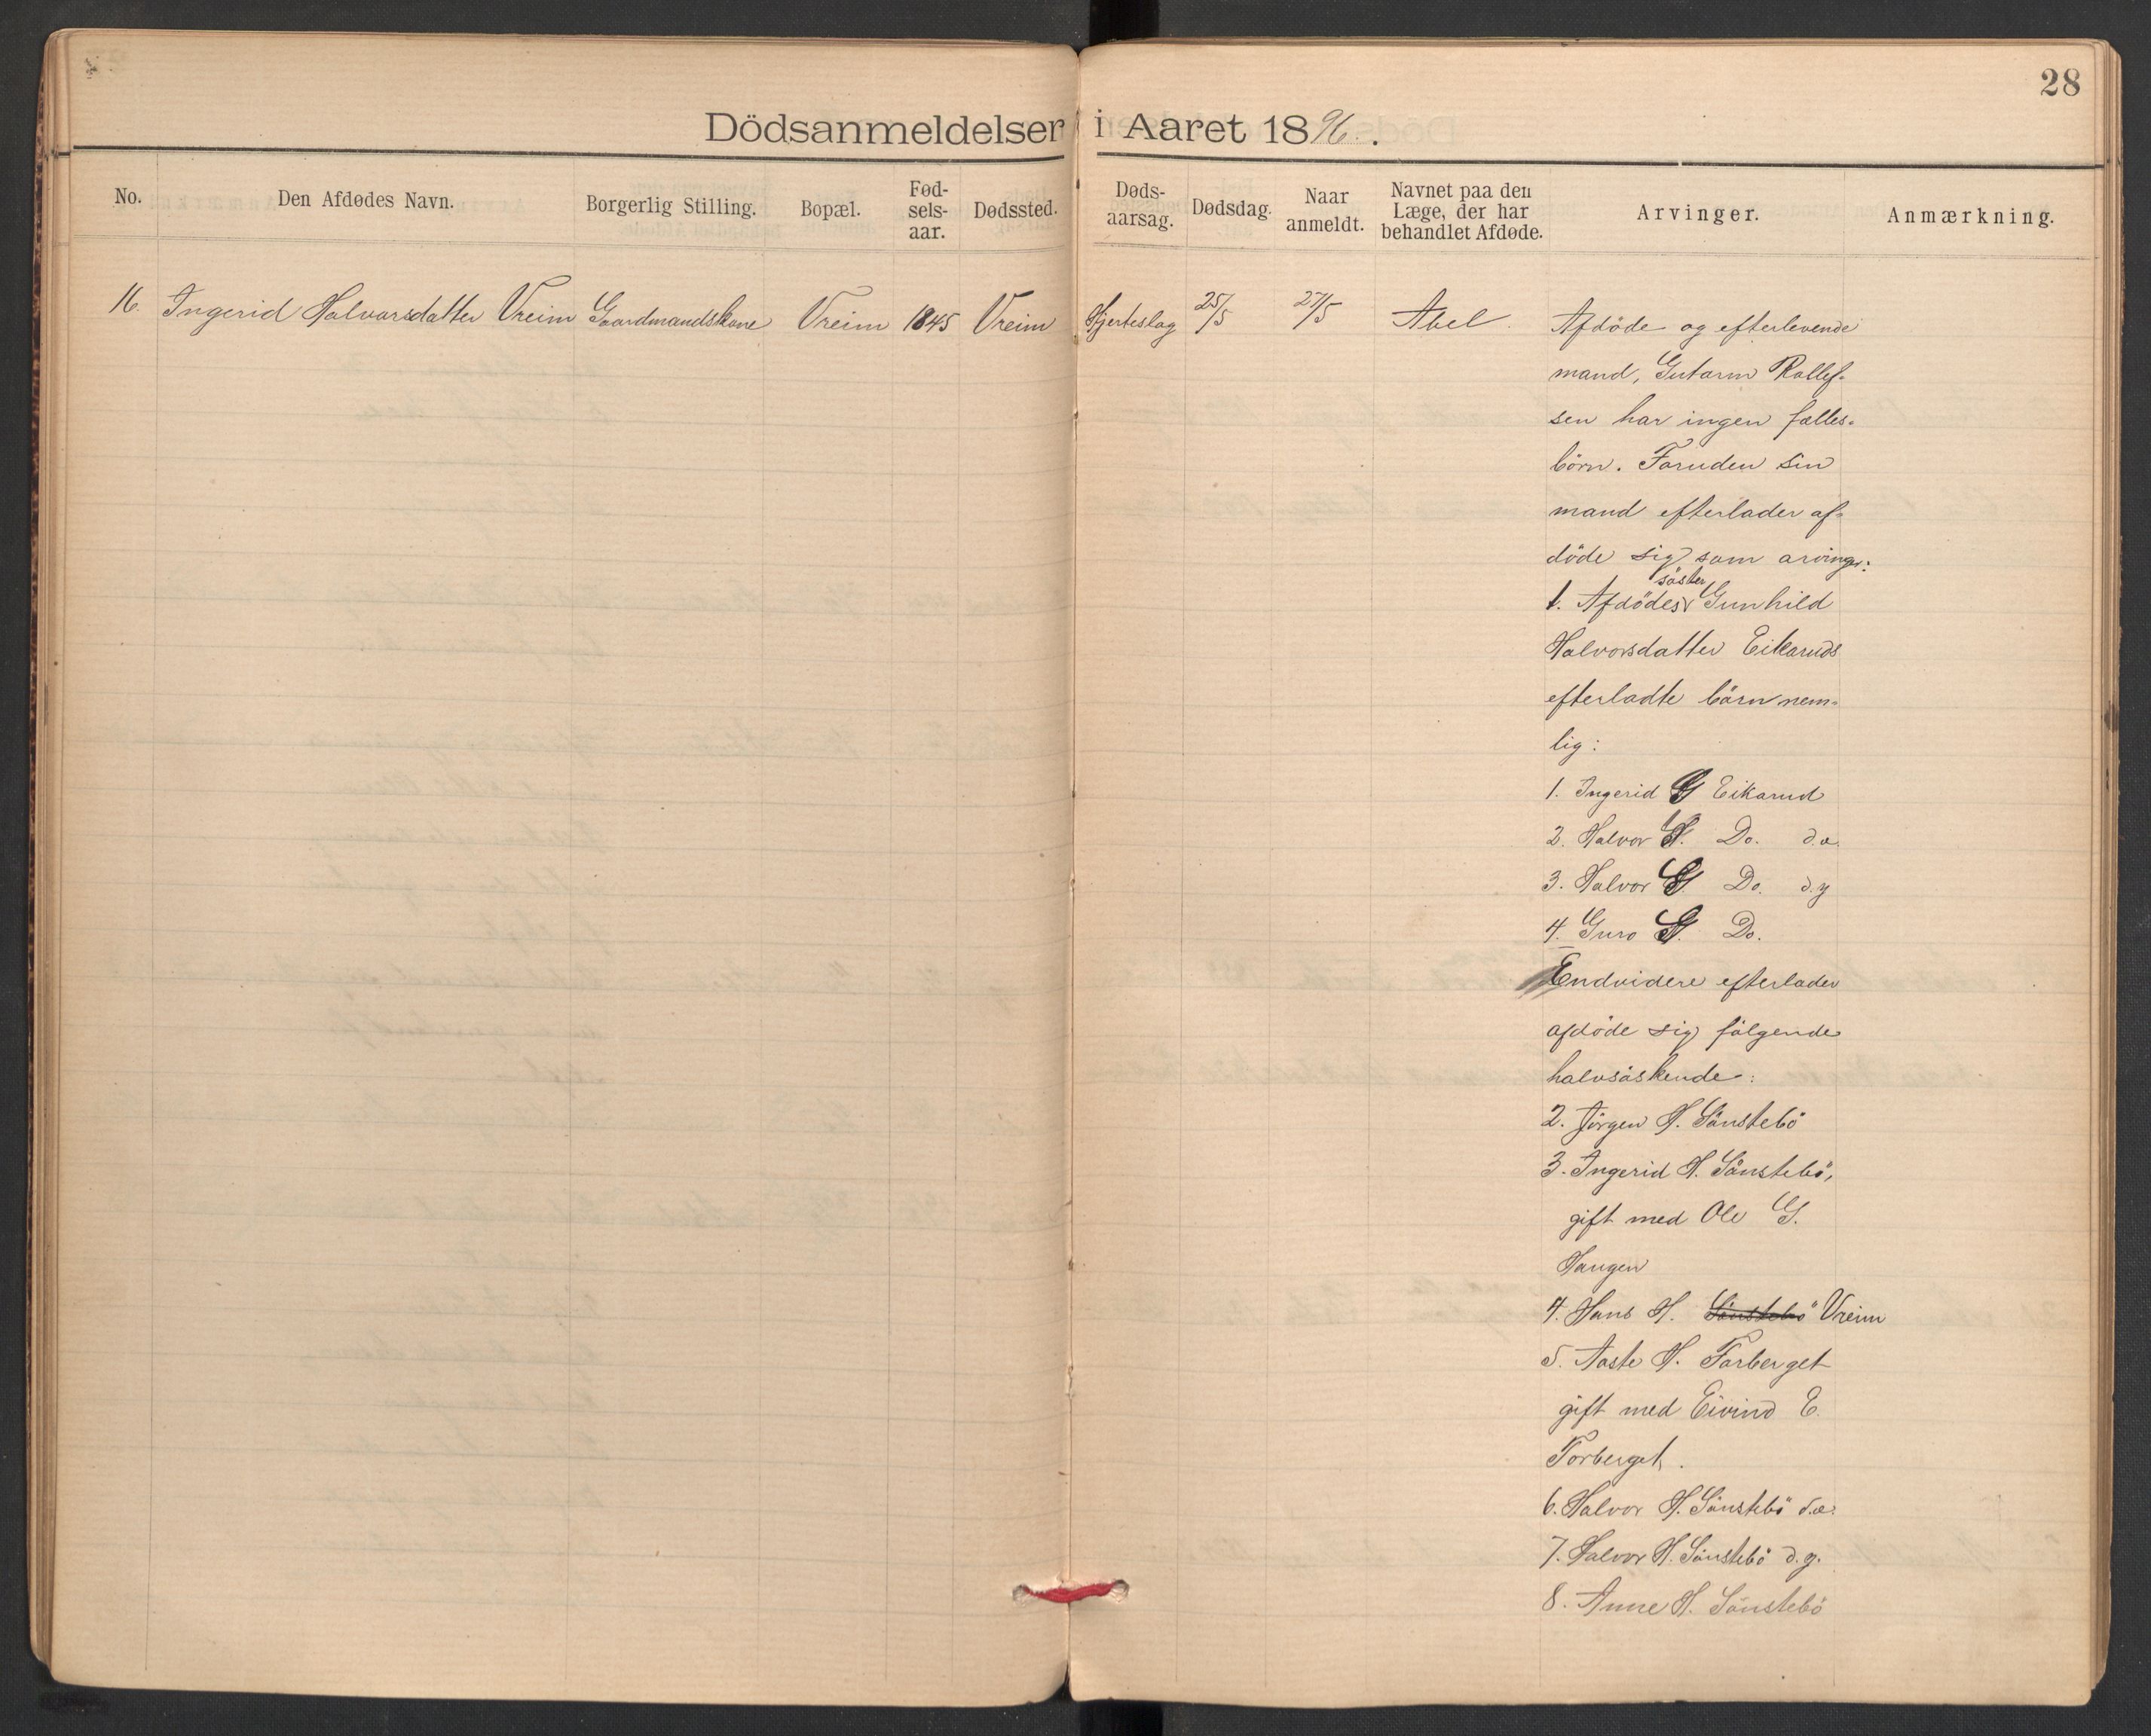 28
Dödsanmeldelser i Aaret 1896.
No. Den Afdødes Navn. Borgerlig Stilling. Bopæl. Fød-sels-aar. Dødssted. Døds-aarsag. Dødsdag. Naar anmeldt. Navnet paa den Læge, der har behandlet Afdøde. Arvinger. Anmærkning.
16. Ingerid Halvorsdatter Vreim Gaardmandskone Vreim 1845 Vreim Hjerteslag 25/5 27/5 Abel. Afdöde og efterlevende
mand, Gutorm Rollef-
sen har ingen fælles-
börn. Foruden sin
mand efterlader af-
döde sig som arvinger:
1. Afdödes söster Gunhild
Halvorsdatter Eikaruds
efterladte börn nem-
lig:
1. Ingerid G Eikarud
2. Halvor G. Do. d.æ.
3. Halvor G Do. d.y
4. Guro G. Do.
Endvidere efterlader
afdöde sig fölgende
halvsöskende:
2. Jörgen H. Sönstebö
3. Ingerid H. Sönstebö,
gift med Ole G.
Haugen
4. Hans H. Sönstebö Vreim
5. Aaste H. Forberget
gift med Eivind E.
Forberget.
6. Halvor H. Sönstebö d.æ.
7. Halvor H. Sönstebö d.y.
8. Anne H. Sönstebö